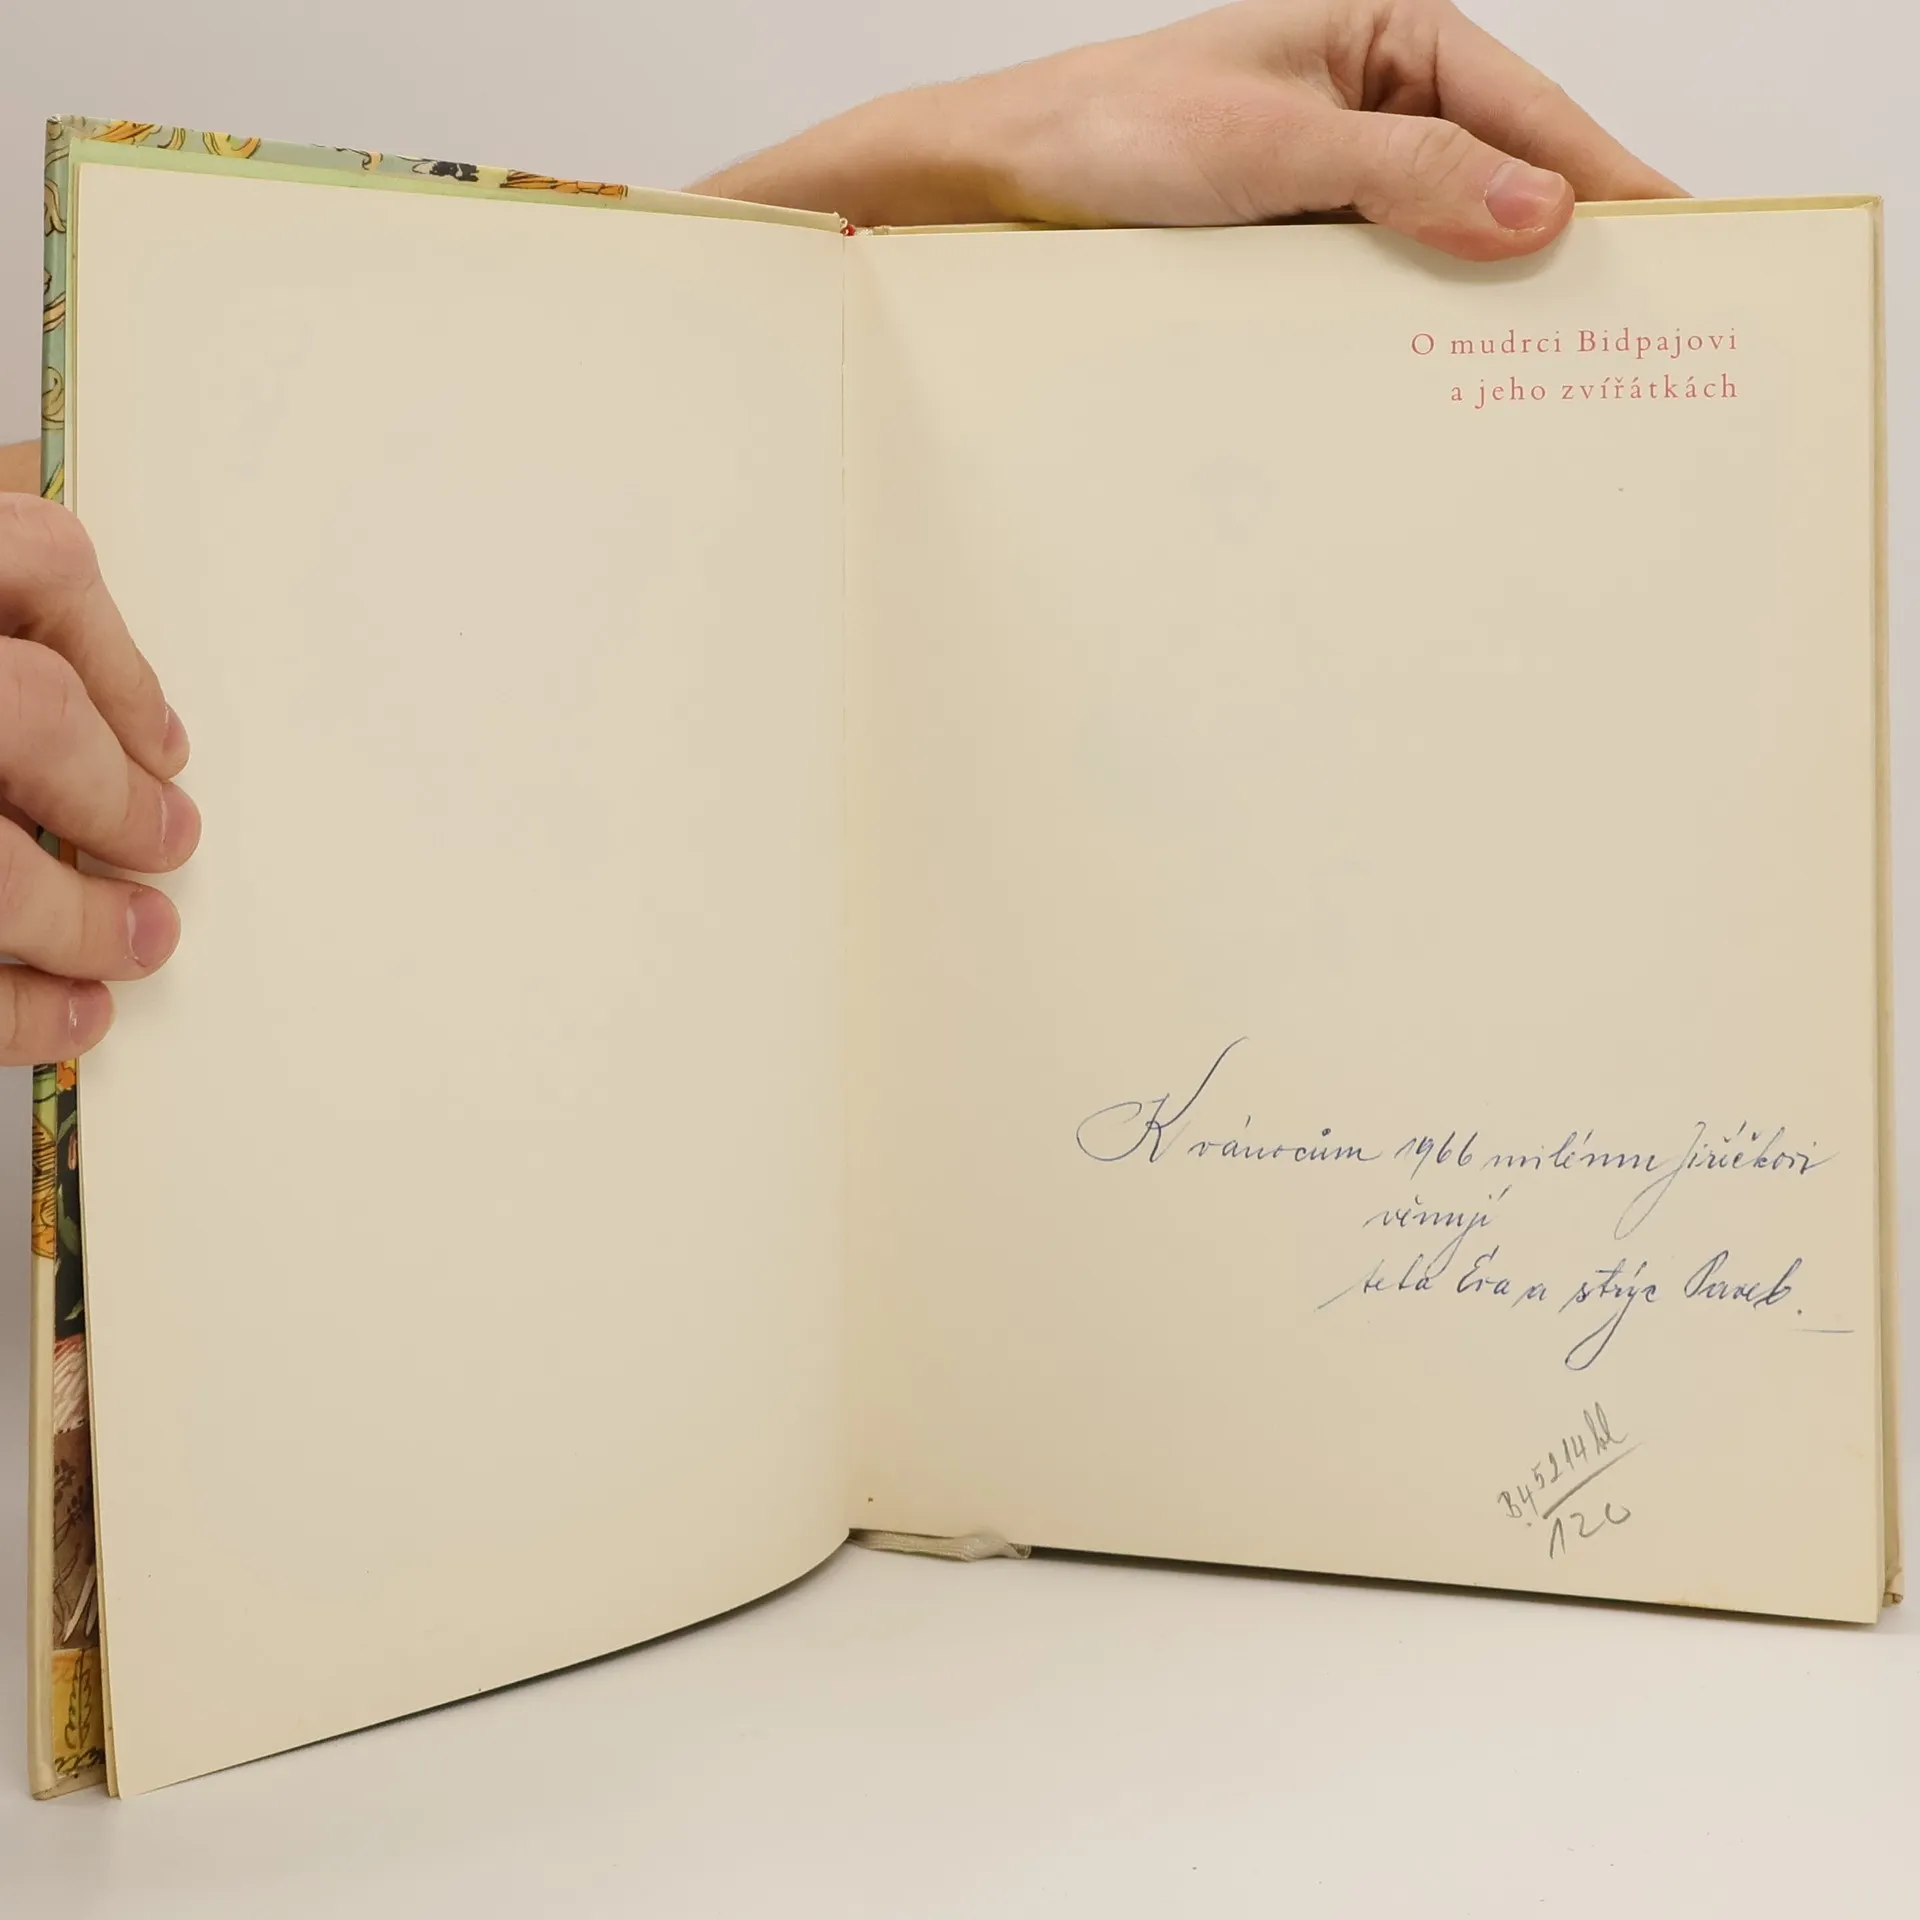 O mudrci Bidpajovi
a jeho zvířátkách
K vánocům 1966 milému Jiříčkovi
věnují
teta Éva a strýc Pavel.
120